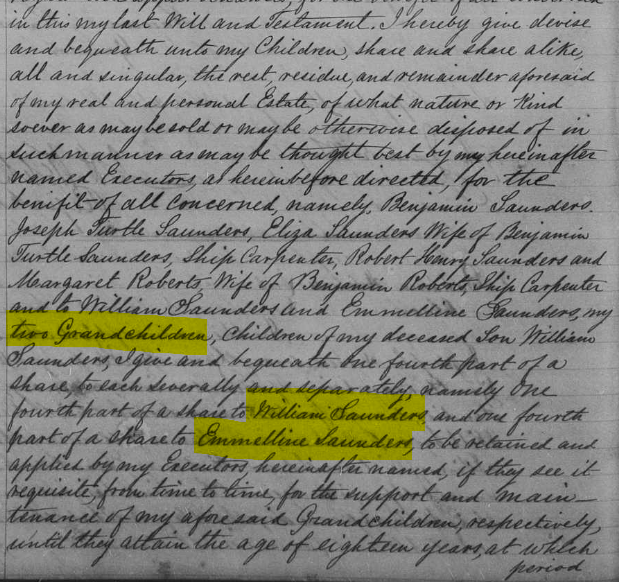 in this my last Will and Testament. I hereby give devise
and bequeath unto my Children, share and share alike,
all and singular, the rest, residue, and remainder aforesaid
of my real and personal Estate, of what nature or Kind
soever as may be sold or may be otherwise disposed of in
such manner as may be thought best by my hereinafter
named Executors, as hereinbefore directed, for the
benifit of all concerned, namely, Benjamin Saunders.
Joseph Turtle Saunders, Eliza Saunders Wife of Benjamin
Turtle Saunders, Ship Carpenter, Robert Henry Saunders and
Margaret Roberts, Wife of Benjamin Roberts, Ship Carpenter
and to William Saunders and Emmelline Saunders, my
two Grandchildren, Children of my deceased Son William
Saunders, I give and bequeath one fourth part of a
share, to each severally and separately, namely One
fourth part of a share to William Saunders and one fourth
part of a share to Emmelline Saunders, to be retained and
applied by my Executors, hereinafter named, if they see it
requisite, from time to time, for the support and main-
tenance of my afore said Grandchildren, respectively,
until they attain the age of eighteen years, at which
period